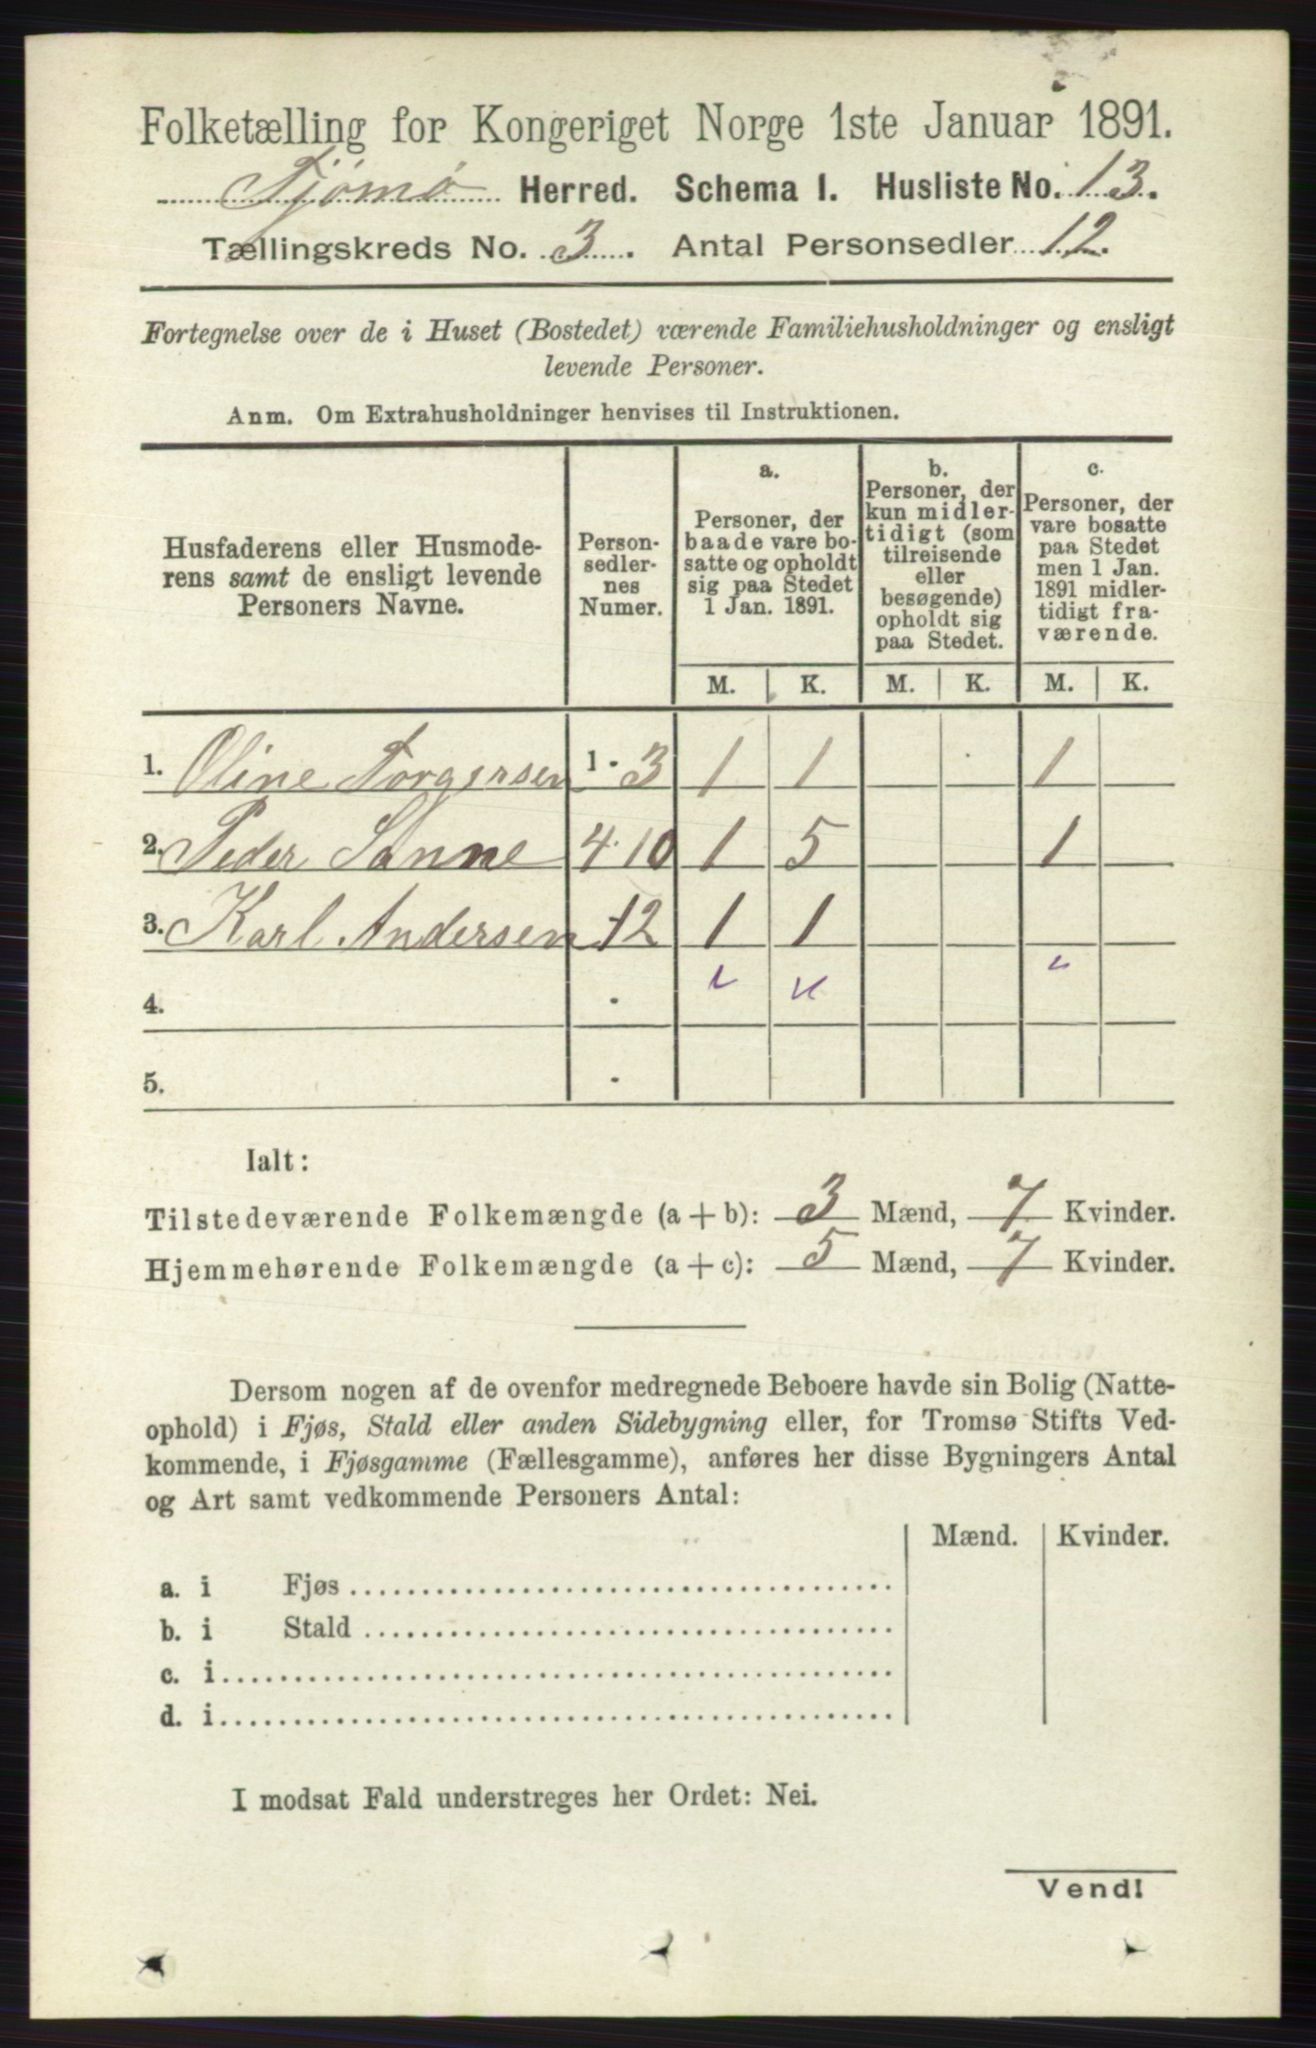 Folketælling for Kongeriget Norge 1ste Januar 1891.
Tjømø Herred. Schema I. Husliste No. 13.
Tællingskreds No. 3. Antal Personsedler 12.
Fortegnelse over de i Huset (Bostedet) værende Familiehusholdninger og ensligt
levende Personer.
Anm. Om Extrahusholdninger henvises til Instruktionen.
Husfaderens eller Husmode-
rens samt de ensligt levende
Personers Navne.
Person-
sedler-
nes
Numer.
a.
Personer, der
baade vare bo-
satte og opholdt
sig paa Stedet
1 Jan. 1891.
b.
Personer, der
kun midler-
tidigt (som
tilreisende
eller
besøgende)
opholdt sig
paa Stedet.
c.
Personer, der
vare bosatte
paa Stedet
men 1 Jan.
1891 midler-
tidigt fra-
værende.
M. K. M. K. M. K.
1. Oline Torgersen 1 - 3 1 1 1
2. Peder Sanne 4 - 10 1 5 1
3. Karl Andersen - 12 1 1
4.
5.
Ialt:
Tilstedeværende Folkemængde (a + b): 3 Mænd, 7 Kvinder.
Hjemmehørende Folkemængde (a + c): 5 Mænd, 7 Kvinder.
Dersom nogen af de ovenfor medregnede Beboere havde sin Bolig (Natte-
ophold) i Fjøs, Stald eller anden Sidebygning eller, for Tromsø Stifts Ved-
kommende, i Fjøsgamme (Fællesgamme), anføres her disse Bygningers Antal
og Art samt vedkommende Personers Antal:
Mænd. Kvinder.
a. i Fjøs
b. i Stald
c. i
d. i
I modsat Fald understreges her Ordet: Nei.
Vend!